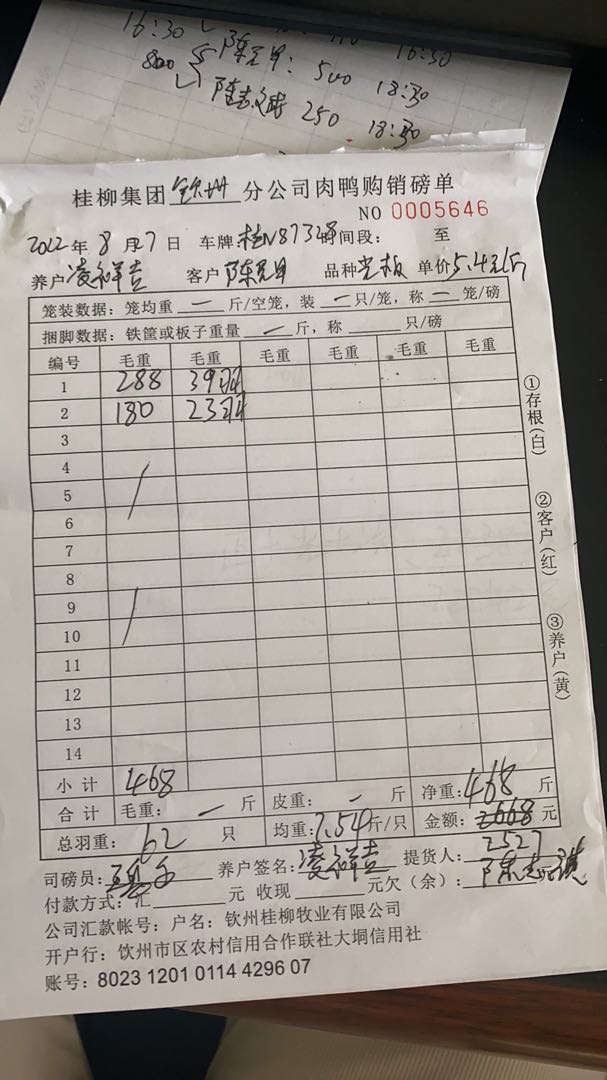 16:30
800 陈兄甲: 500 18:30
250 18:30
桂柳集团 钦州 分公司肉鸭购销磅单
NO 0005646
2022年 8月27日 车牌: 桂N87328 时间段: 至
养户 凌祥吉 客户 品种 单价5.4元/斤
笼装数据: 笼均重 一 斤/空笼, 装 一 只/笼, 称 一 笼/磅
捆脚数据: 铁筐或板子重量 一 斤, 称 只/磅
编号 毛重 毛重 毛重 毛重 毛重 毛重
1 288 39羽
2 180 23羽
3
4
5
6
7
8
9
10
11
12
13
14
①存根(白)
②客户(红)
③养户(黄)
小计 468 净重: 468 斤
合计 毛重: 一 斤 皮重: 一 斤
总羽重: 62 只 均重: 7.54 斤/只 金额: 2668 元
2527
司磅员: 养户签名: 凌祥吉 提货人:
付款方式: 汇 元 收现 元欠(余):
公司汇款帐号: 户名: 钦州桂柳牧业有限公司
开户行: 钦州市区农村信用合作联社大垌信用社
账号: 8023 1201 0114 4296 07